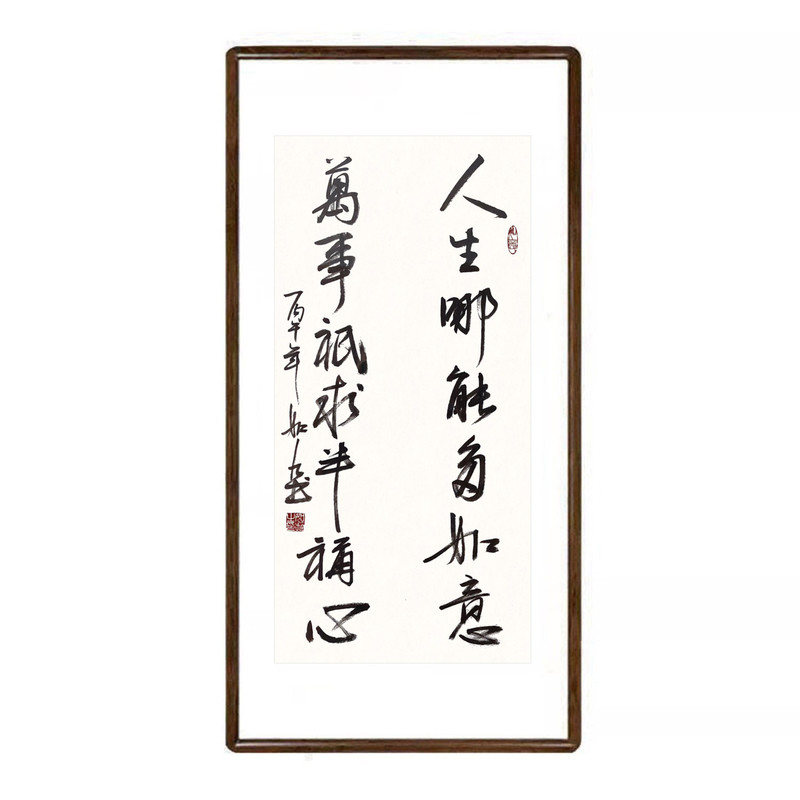 人生哪能多如意
萬事祇求半稱心
丙午年 如